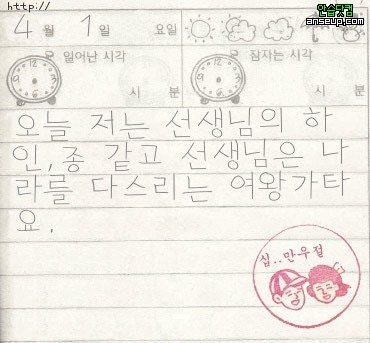 http://
안습닷컴
anseup.com
4월 1일 요일
일어난 시각
잠자는 시각
시 분
시 분
오늘 저는 선생님의 하
인,종 같고 선생님은 나
라를 다스리는 여왕가타
요.
십..만우절